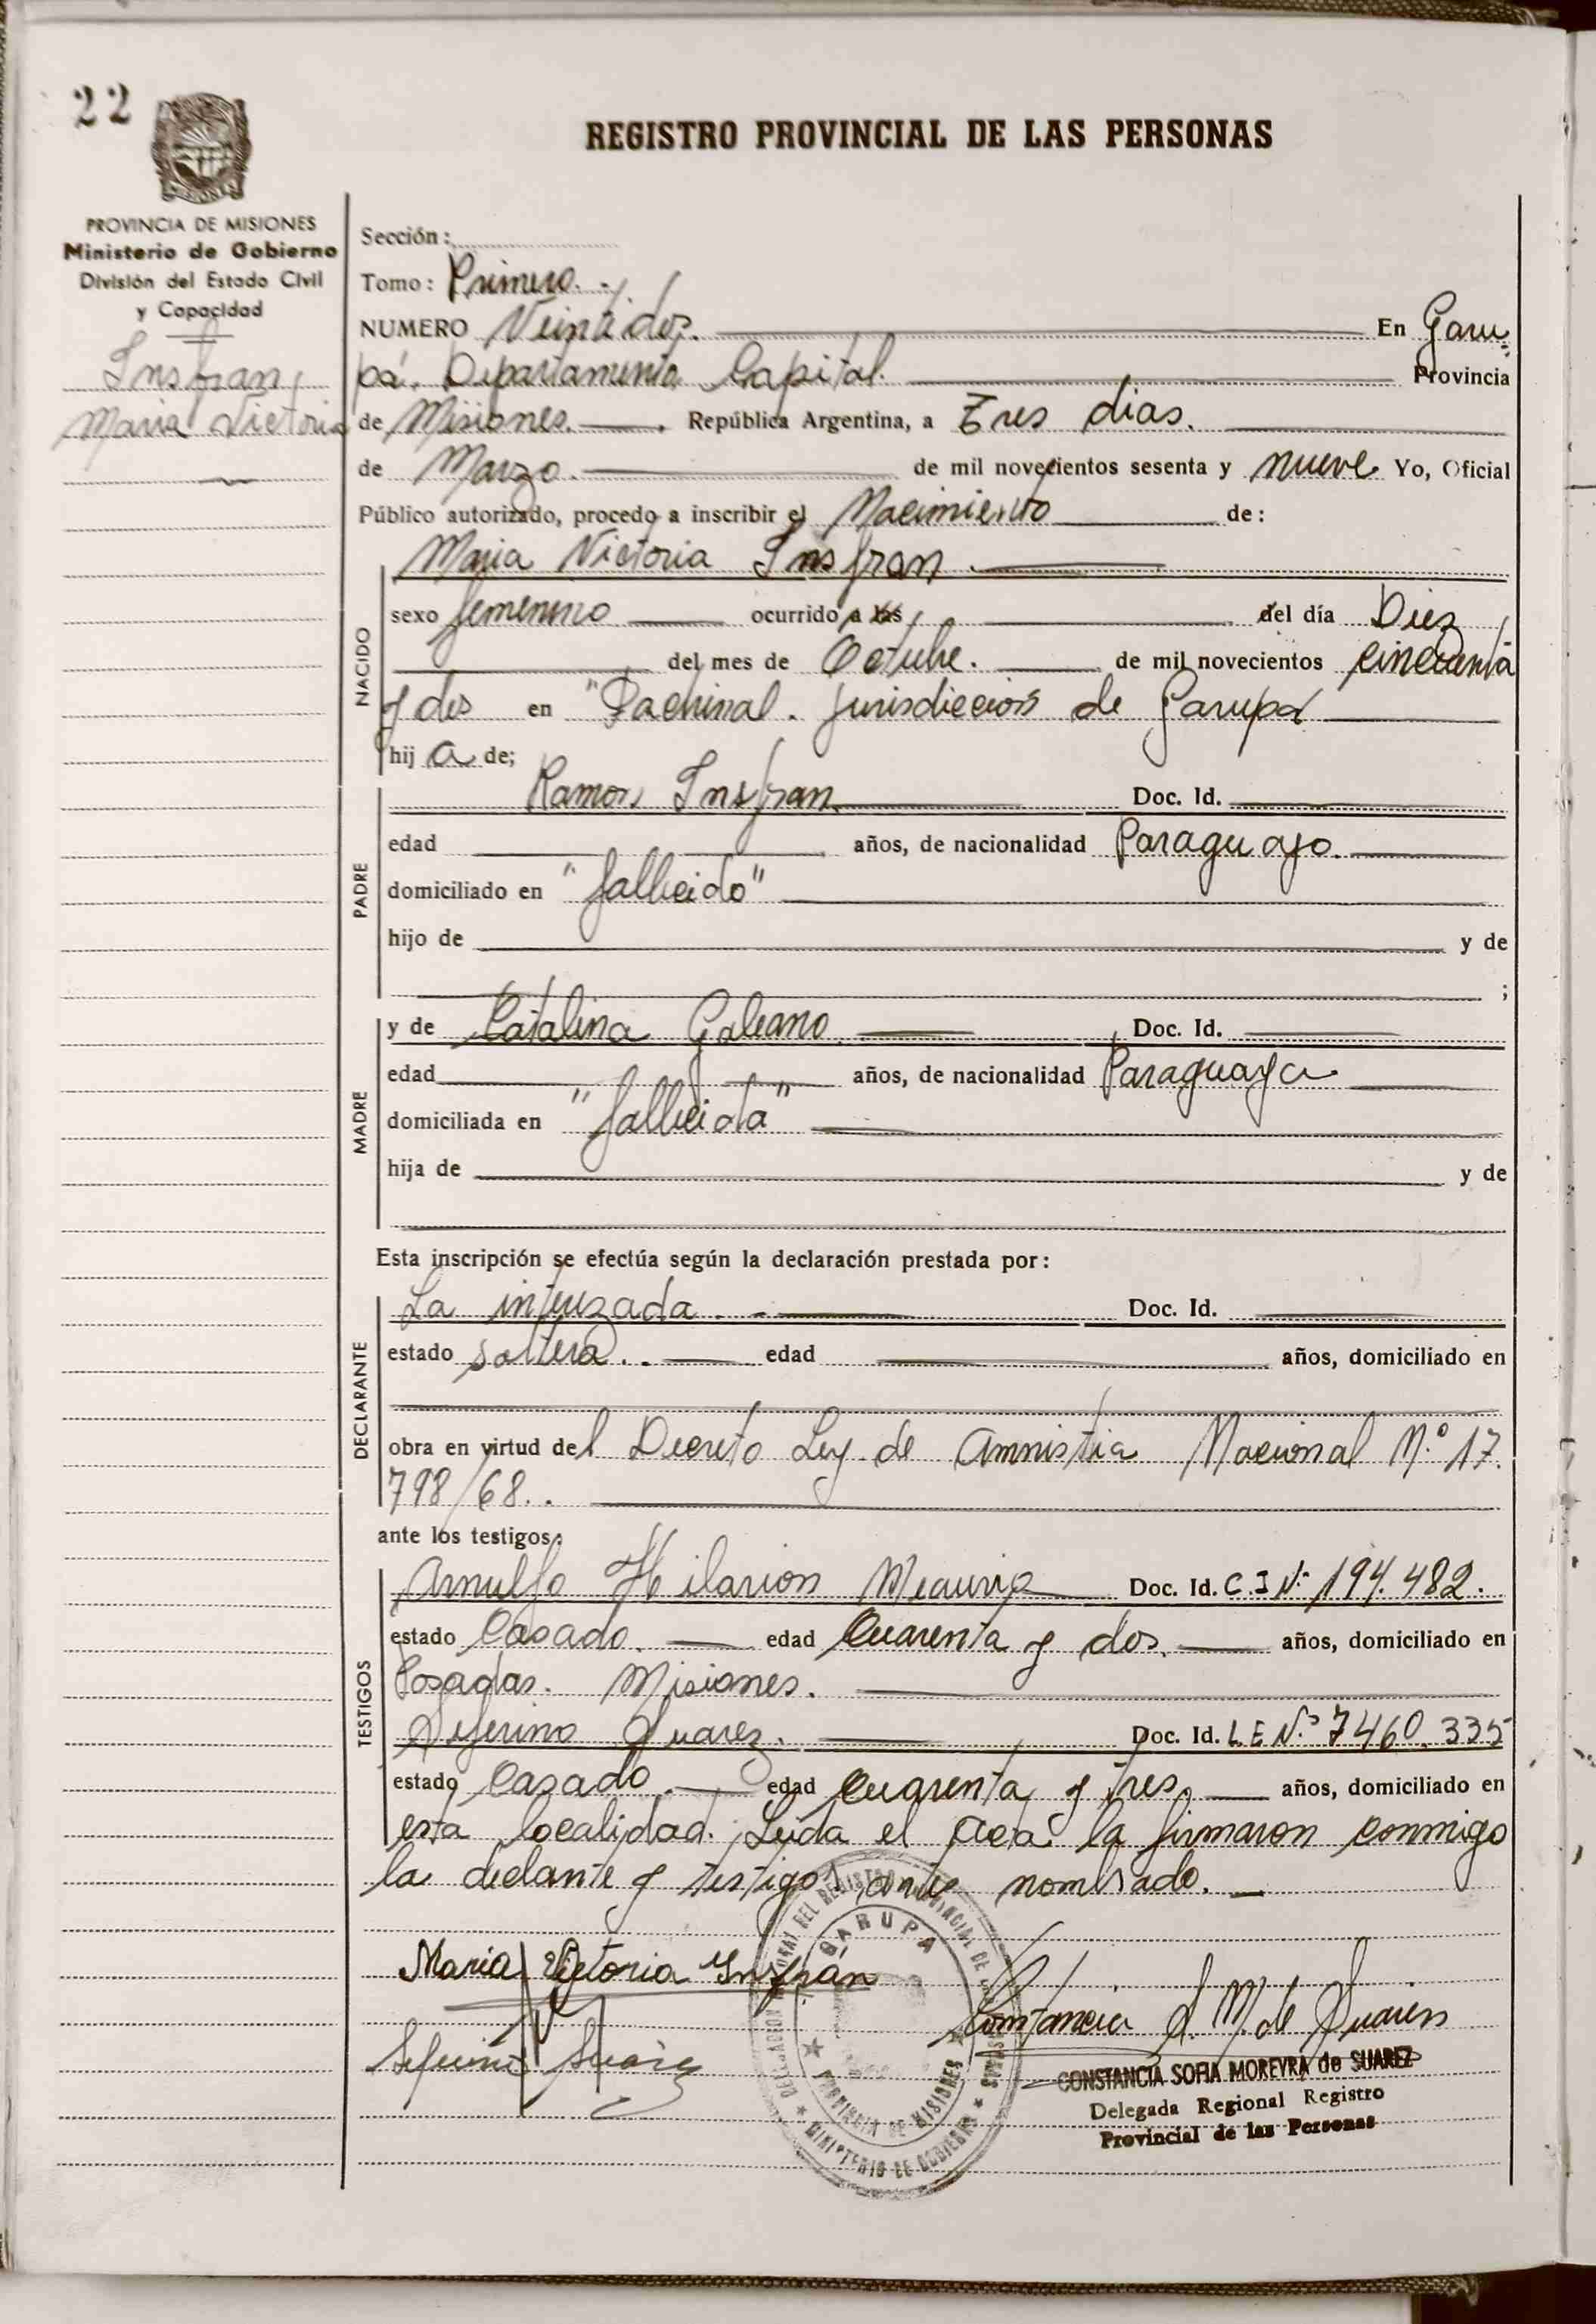 22
REGISTRO PROVINCIAL DE LAS PERSONAS
PROVINCIA DE MISIONES
Ministerio de Gobierno
División del Estado Civil
y Capacidad
Insfran,
Maria Victoria
Sección:
Tomo: Primero.-
NUMERO Veintidos. En Garu-
pá. Departamento Capital. Provincia
de Misiones. República Argentina, a Tres dias.
de Marzo. de mil novecientos sesenta y nueve Yo, Oficial
Público autorizado, procedo a inscribir el Nacimiento de:
NACIDO
Maria Victoria Insfran.
sexo femenino ocurrido a las del día Diez
del mes de Octubre. de mil novecientos cincuenta
y dos en "Pachinal. Jurisdiccion de Garupá
hija de;
PADRE
Ramon Insfran Doc. Id.
edad años, de nacionalidad Paraguayo.
domiciliado en "fallecido"
hijo de y de
;
MADRE
y de Catalina Galeano. Doc. Id.
edad años, de nacionalidad Paraguaya
domiciliada en "fallecida"
hija de y de
Esta inscripción se efectúa según la declaración prestada por:
DECLARANTE
La interezada.- Doc. Id.
estado soltera.. edad años, domiciliado en
obra en virtud del Decreto Ley de Amnistia Nacional N.º 17.
798/68..
ante los testigos:
TESTIGOS
Arnulfo Hilarion Meaurio Doc. Id. C.I Nº 194.482.
estado Casado. edad Cuarenta y dos. años, domiciliado en
Posadas. Misiones.
Seferino Suarez. Doc. Id. L E N.º 7460.335
estado Casado. edad Cuarenta y tres años, domiciliado en
esta localidad. Leida el acta la firmaron conmigo
la declante y testigos antes nombrado.
Maria Victoria Insfrán
Seferino Suarez
Constancia S. M. de Suarez
CONSTANCIA SOFIA MOREYRA de SUAREZ
Delegada Regional Registro
Provincial de las Personas
GARUPA
PROVINCIA DE MISIONES
MINISTERIO DE GOBIERNO